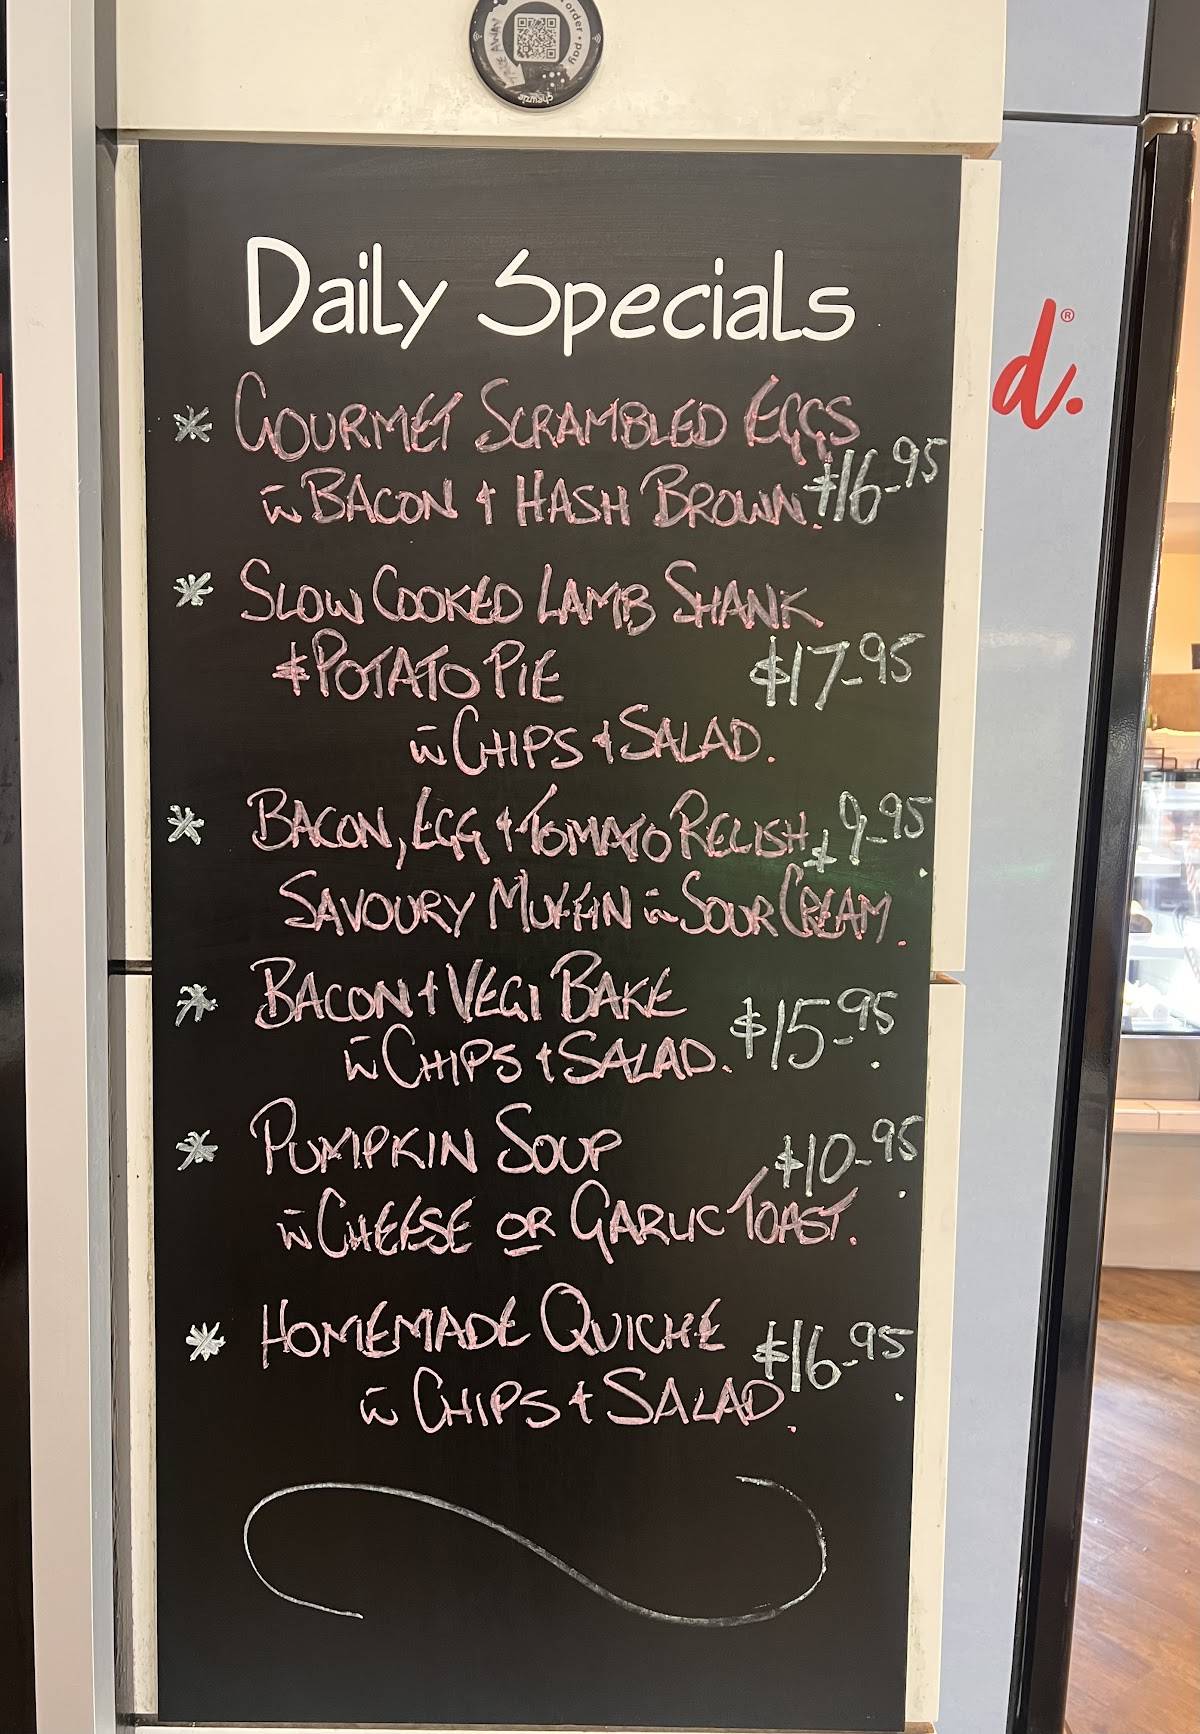 order • pay
TAKE AWAY
chewzie
Daily Specials
d.®
* GOURMET SCRAMBLED EGGS
w̄ BACON + HASH BROWN. $16-95
* SLOW COOKED LAMB SHANK
& POTATO PIE $17-95
w̄ CHIPS + SALAD.
* BACON, EGG + TOMATO RELISH $9-95.
SAVOURY MUFFIN w̄ SOUR CREAM.
* BACON + VEGI BAKE $15-95.
w̄ CHIPS + SALAD.
* PUMPKIN SOUP $10-95.
w̄ CHEESE OR GARLIC TOAST.
* HOMEMADE QUICHE $16-95.
w̄ CHIPS + SALAD.